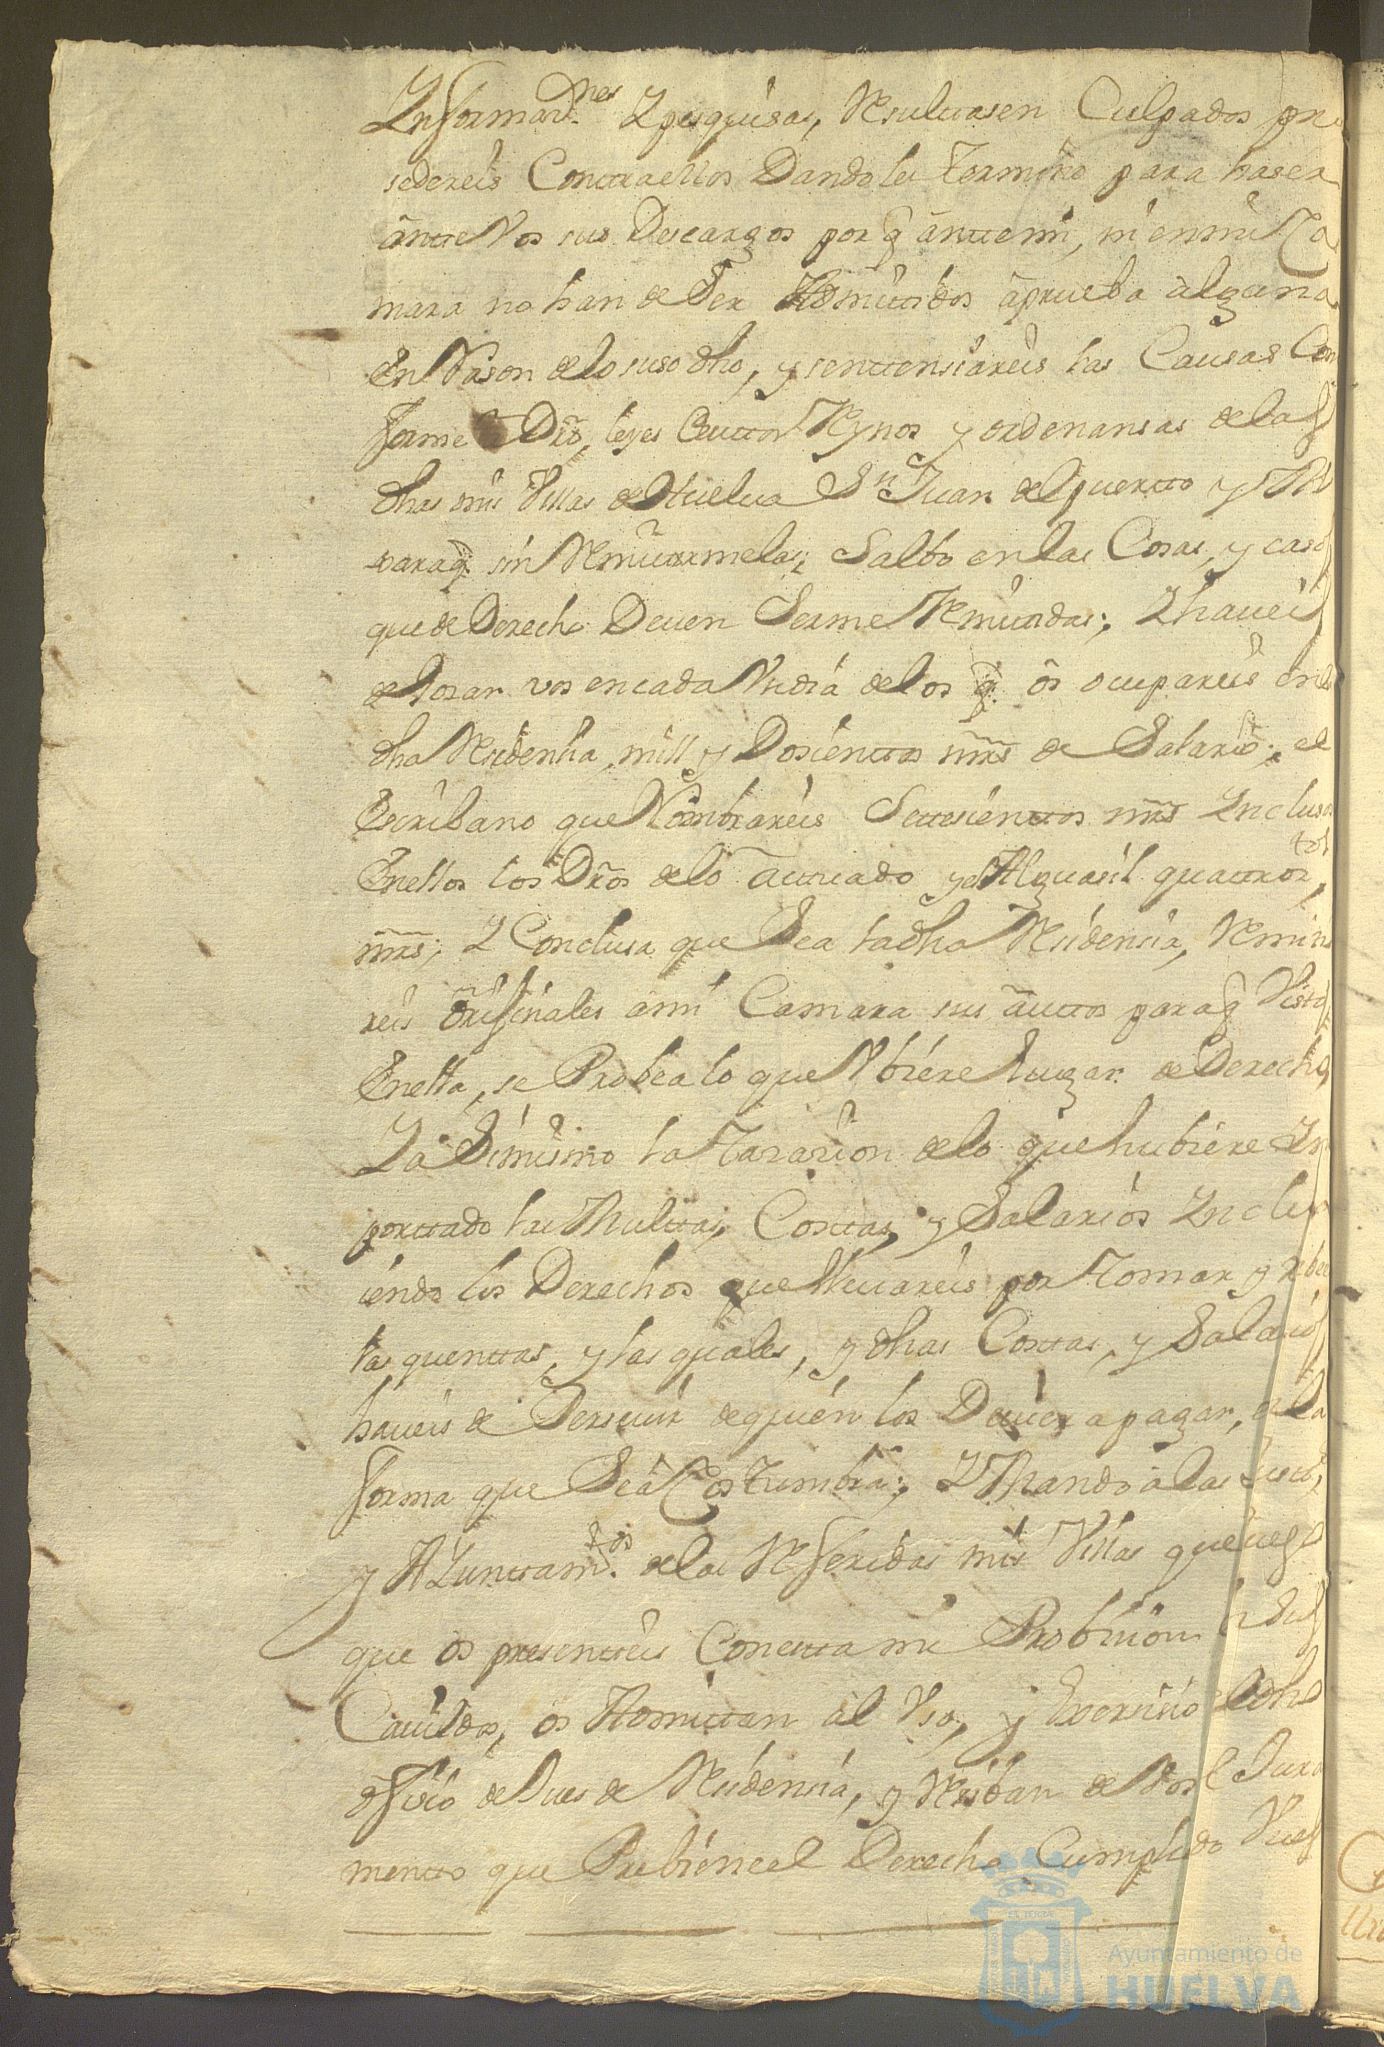 Informacio.nes Y pesquisas, Resultasen Culpados pro
sedereis Contraellos Dandoles termino para haser
ante Vos sus Descargos porq antemi, ni enmi Ca
mara no han de Ser Admitidos aprueba alguna
En Rason delo suso dho, y sentensiareis las Causas Con
forme a Dro, leyes Reynos y ordenansas delas
dhas mis Villas de Huelua Sn Juan del puerto y
paraq. sin Remitirmelas; Salbo en las Cosas, y casos
que de Derecho Deuen Serme Remitidas; Y haueis
de lleuar vos encada Vn dia delos q. os ocupareis en la
dha Residensia, mill y Dosientos mrs de Salario; el
Escribano que Nombrareis Setesientos mrs Inclusos
Enellos los Dros delo actuado y el Alguasil quatros.tos
mrs; Y Conclusa que Sea la dha Residensia, Remiti
reis Originales ami Camara sus autos paraq Vistos
Enella, se Probea lo que Vbiere lugar de Derecho
Y asimismo la Tasasion delo que hubiere Im
portado las Multas, Costas, y Salarios Inclu
iendo los Derechos que lleuareis por tomar y
las quentas, y las quales, y dhas Costas, y Salarios
haueis de Perseuir de quien los Deuiera pagar, en la
forma que Sea Costumbre; Y Mando a las
y AYuntam.tos delas Referidas mis Villas que
que os presenteis Conesta mi Probision
Cauildos, os Admittan al Vso, y Exersisio del dho
ofisio de Jues de Residensia, y Resiban de Vos el Jura
mento que Prebiene el Derecho Cumplido
Ayuntamiento de
HUELVA